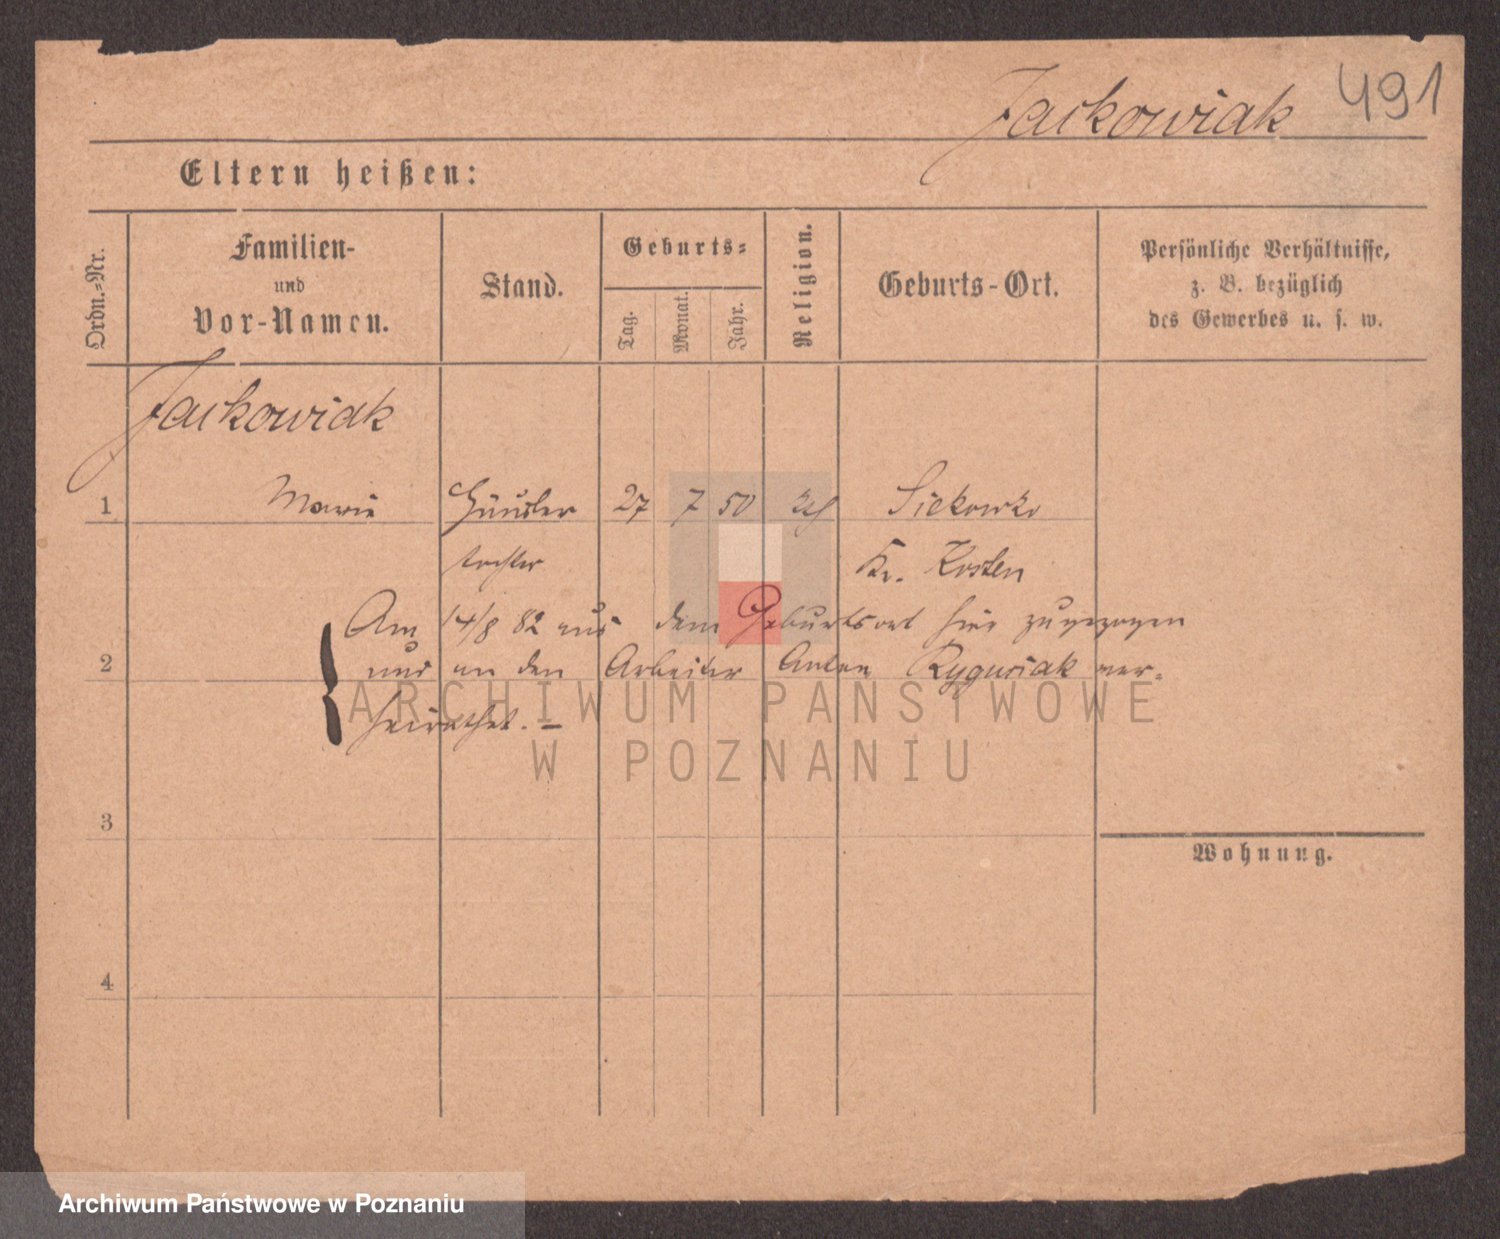 Jackowiak 491
Eltern heißen:
Ordn.-Nr.
Familien-
und
Vor-Namen.
Stand.
Geburts-
Tag.
Monat.
Jahr.
Religion.
Geburts-Ort.
Persönliche Verhältnisse,
z. B. bezüglich
des Gewerbes u. s. w.
Jackowiak
1 Marie Häusler 27 7 50 kth Siekowko
tochter Kr. Kosten
Am 14/8 82 aus dem Geburtsort hier zugezogen
2 und an den Arbeiter Anton Rygusiak ver-
heirathet. –
ARCHIWUM PAŃSTWOWE
W POZNANIU
3
Wohnung.
4
Archiwum Państwowe w Poznaniu